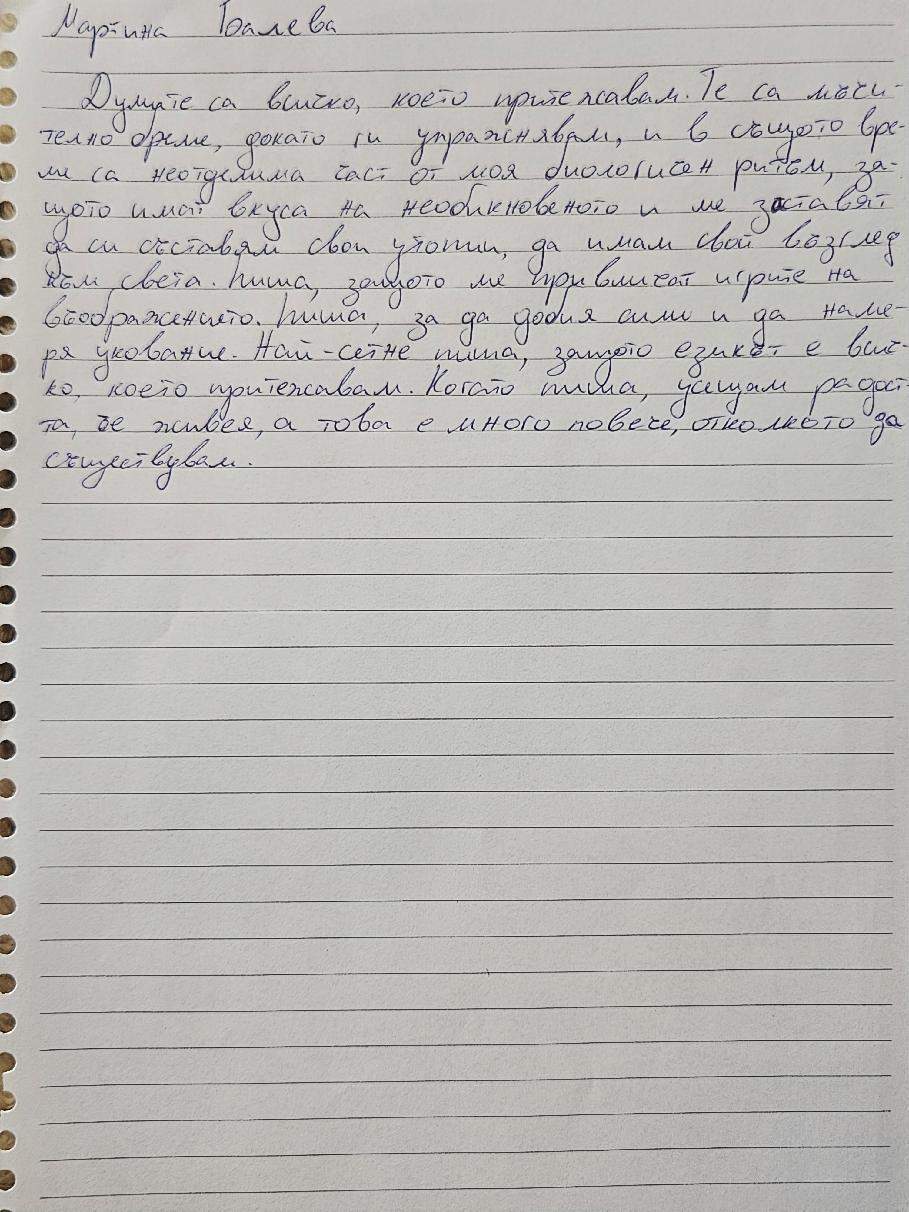 Мартина Балева
Думите са всичко, което притежавам. Те са мъчи-
телно бреме, докато ги упражнявам, и в същото вре-
ме са неотделима част от моя биологичен ритъм, за-
щото имат вкуса на необикновеното и ме заставят
да си съставям свои утопии, да имам свой възглед
към света. Пиша, защото ме привличат игрите на
въображението. Пиша, за да добия сили и да наме-
ря упование. Най-сетне пиша, защото езикът е всич-
ко, което притежавам. Когато пиша, усещам радост-
та, че живея, а това е много повече, отколкото да
съществувам.